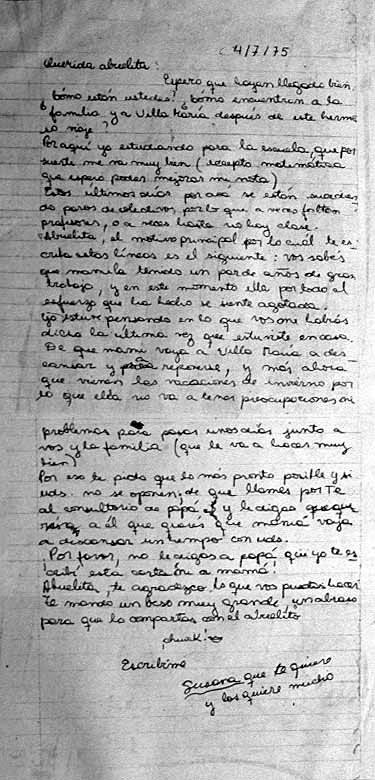 4/7/75
Querida abuelita:
Espero que hayan llegado bien.
¿Cómo están ustedes? ¿Cómo encuentran a la
familia y a Villa María después de este hermo
so viaje?
Por aquí yo estudiando para la escuela, que por
suerte me va muy bien (excepto matemática
que espero poder mejorar mi nota)
Estos últimos días por acá se están sucedien
do paros de colectivos, por lo que a veces faltan
profesores, o a veces hasta no hay clase.
Abuelita, el motivo principal por lo cuál te es
cribo estas líneas es el siguiente: vos sabés
que mamá ha tenido un par de años de gran
trabajo, y en este momento ella por todo el
esfuerzo que ha hecho se siente agotada.
Yo estuve pensando en lo que vos me habías
dicho la última vez que estuviste en casa.
De que mami vaya a Villa María a des
cansar y reponerse, y más ahora
que vienen las vacaciones de invierno por
lo que ella no va a tener preocupaciones ni
problemas para pasar unos días junto a
vos y la familia (que le va a hacer muy
bien)
Por eso te pido que lo más pronto posible y si
uds. no se oponen, de que llames por Te
al consultorio de papá y le digas
a él que querés que mamá vaya
a descansar un tiempo con uds.
¡Por favor, no le digas a papá que yo te es
cribí esta carta ni a mamá!
Abuelita, te agradezco lo que vos puedas hacer
Te mando un beso muy grande, un abrazo
para que lo compartas con el abuelito
¡chuik!
Escribime
Susana que te quiere
y los quiere mucho